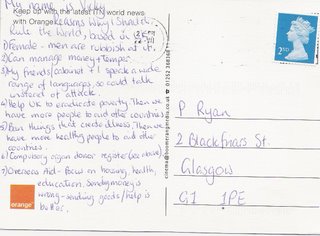 My name is Vicky
Keep up with the latest ITN world news
with Orange
Reasons Why I Should
Rule the World, based in UK
1) Female - men are rubbish at it.
2) Can manage money & temper.
3) My friends/cabinet & I speak a wide
range of languages, so could talk
instead of attack.
4) Help UK to eradicate poverty. Then we
have more people to aid other countries
5) Ban things that create illness. Then we
have more healthy people to aid other
countries.
6) Compulsory organ donor register (see above)
7) Overseas Aid - focus on housing, health,
education. Sending money is
wrong - sending goods/help is
better.
orange
2ND
P Ryan
2 Blackfriars St.
Glasgow
G1 1PE